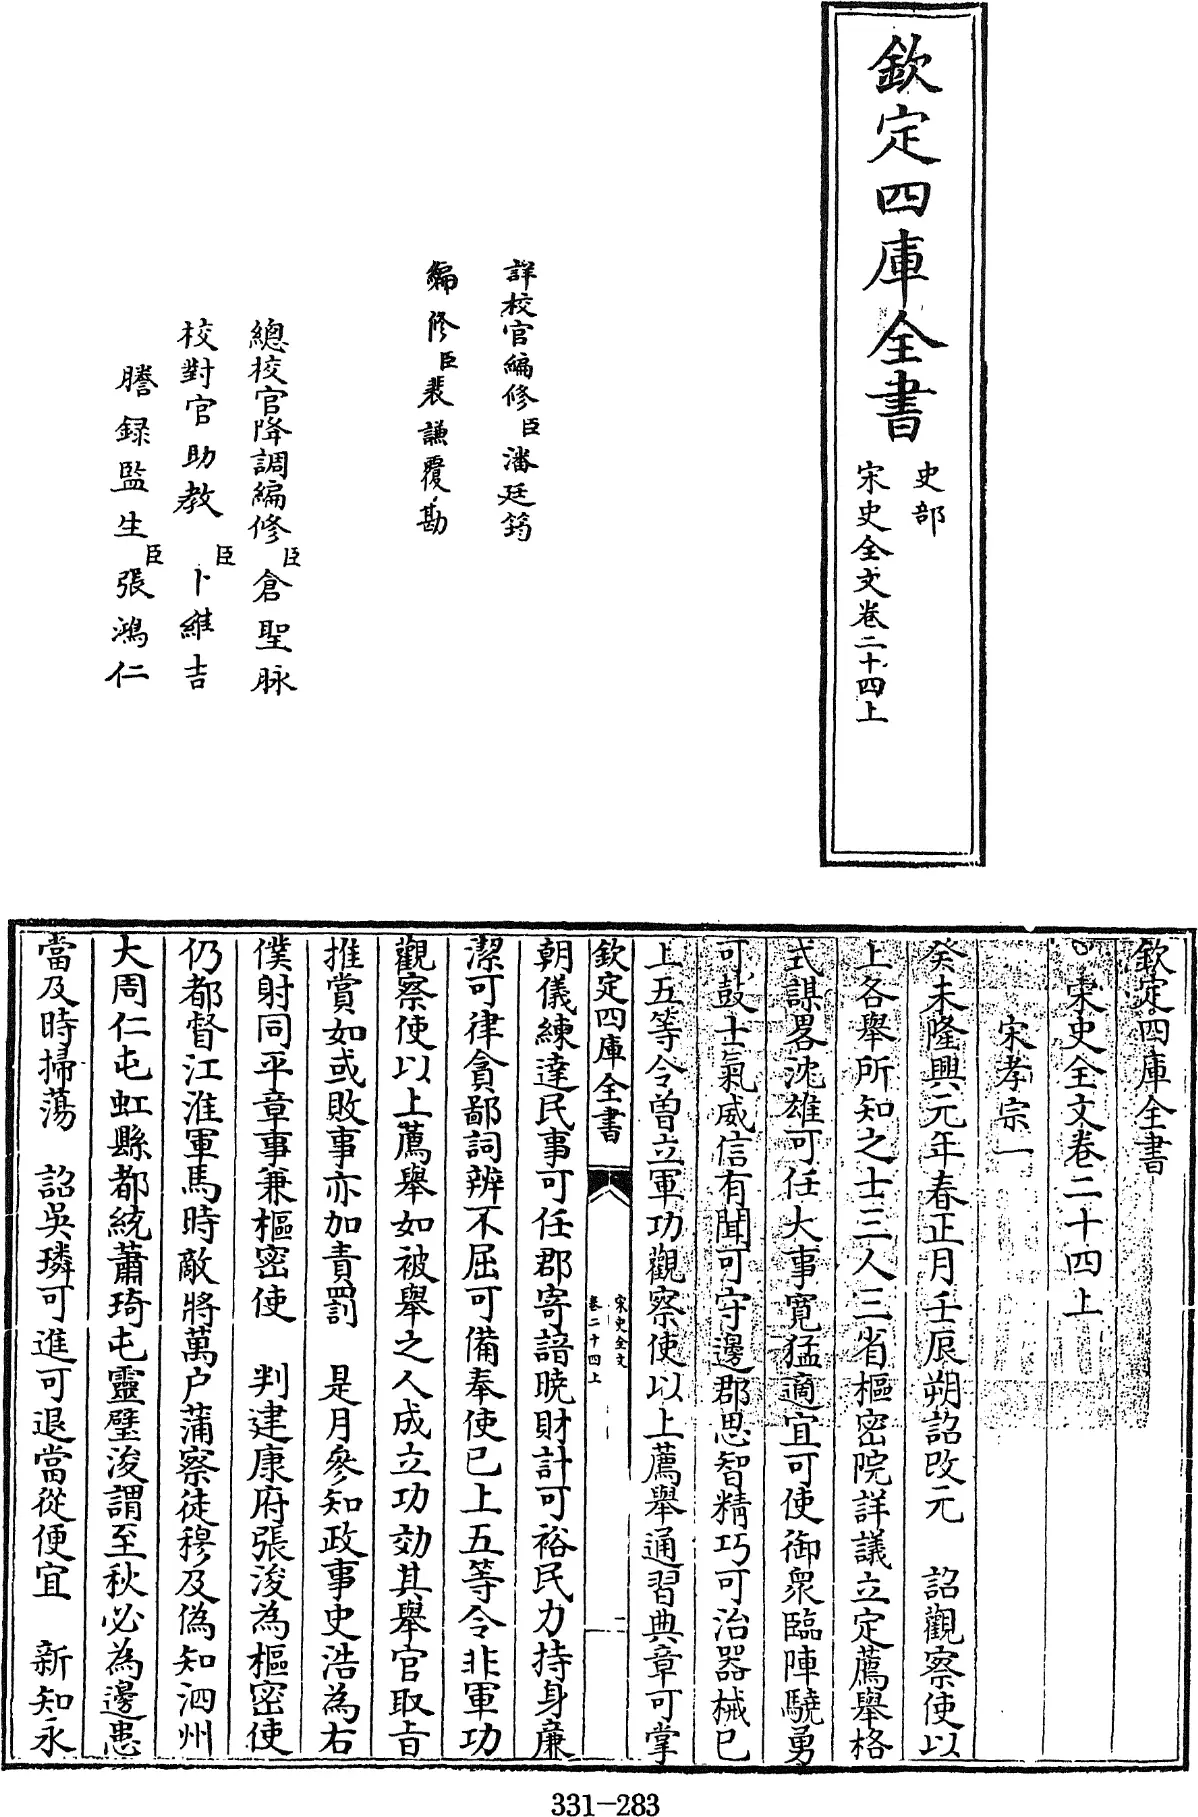 欽定四庫全書
史部
宋史全文卷二十四上
詳校官編修臣潘廷筠
編修臣裴謙覆勘
總校官降調編修臣倉聖脉
校對官助教臣卜維吉
謄錄監生臣張鴻仁
欽定四庫全書
宋史全文卷二十四上
宋孝宗一
癸未隆興元年春正月壬辰朔詔改元　詔觀察使以
上各舉所知之士三人三省樞密院詳議立定薦舉格
式謀畧沈雄可任大事寛猛適宜可使御衆臨陣驍勇
可鼓士氣威信有聞可守邊郡思智精巧可治器械已
上五等令曽立軍功觀察使以上薦舉通習典章可掌
朝儀練達民事可任郡寄諳曉財計可裕民力持身廉
潔可律貪鄙詞辨不屈可備奉使已上五等令非軍功
觀察使以上薦舉如被舉之人成立功効其舉官取㫖
推賞如或敗事亦加責罰　是月參知政事史浩為右
僕射同平章事兼樞密使　判建康府張浚為樞密使
仍都督江淮軍馬時敵將萬户蒲察徒穆及偽知泗州
大周仁屯虹縣都統蕭琦屯靈璧浚謂至秋必為邊患
當及時掃蕩　詔吳璘可進可退當從便宜　新知永
欽定四庫全書
宋史全文
卷二十四上
二
331-283